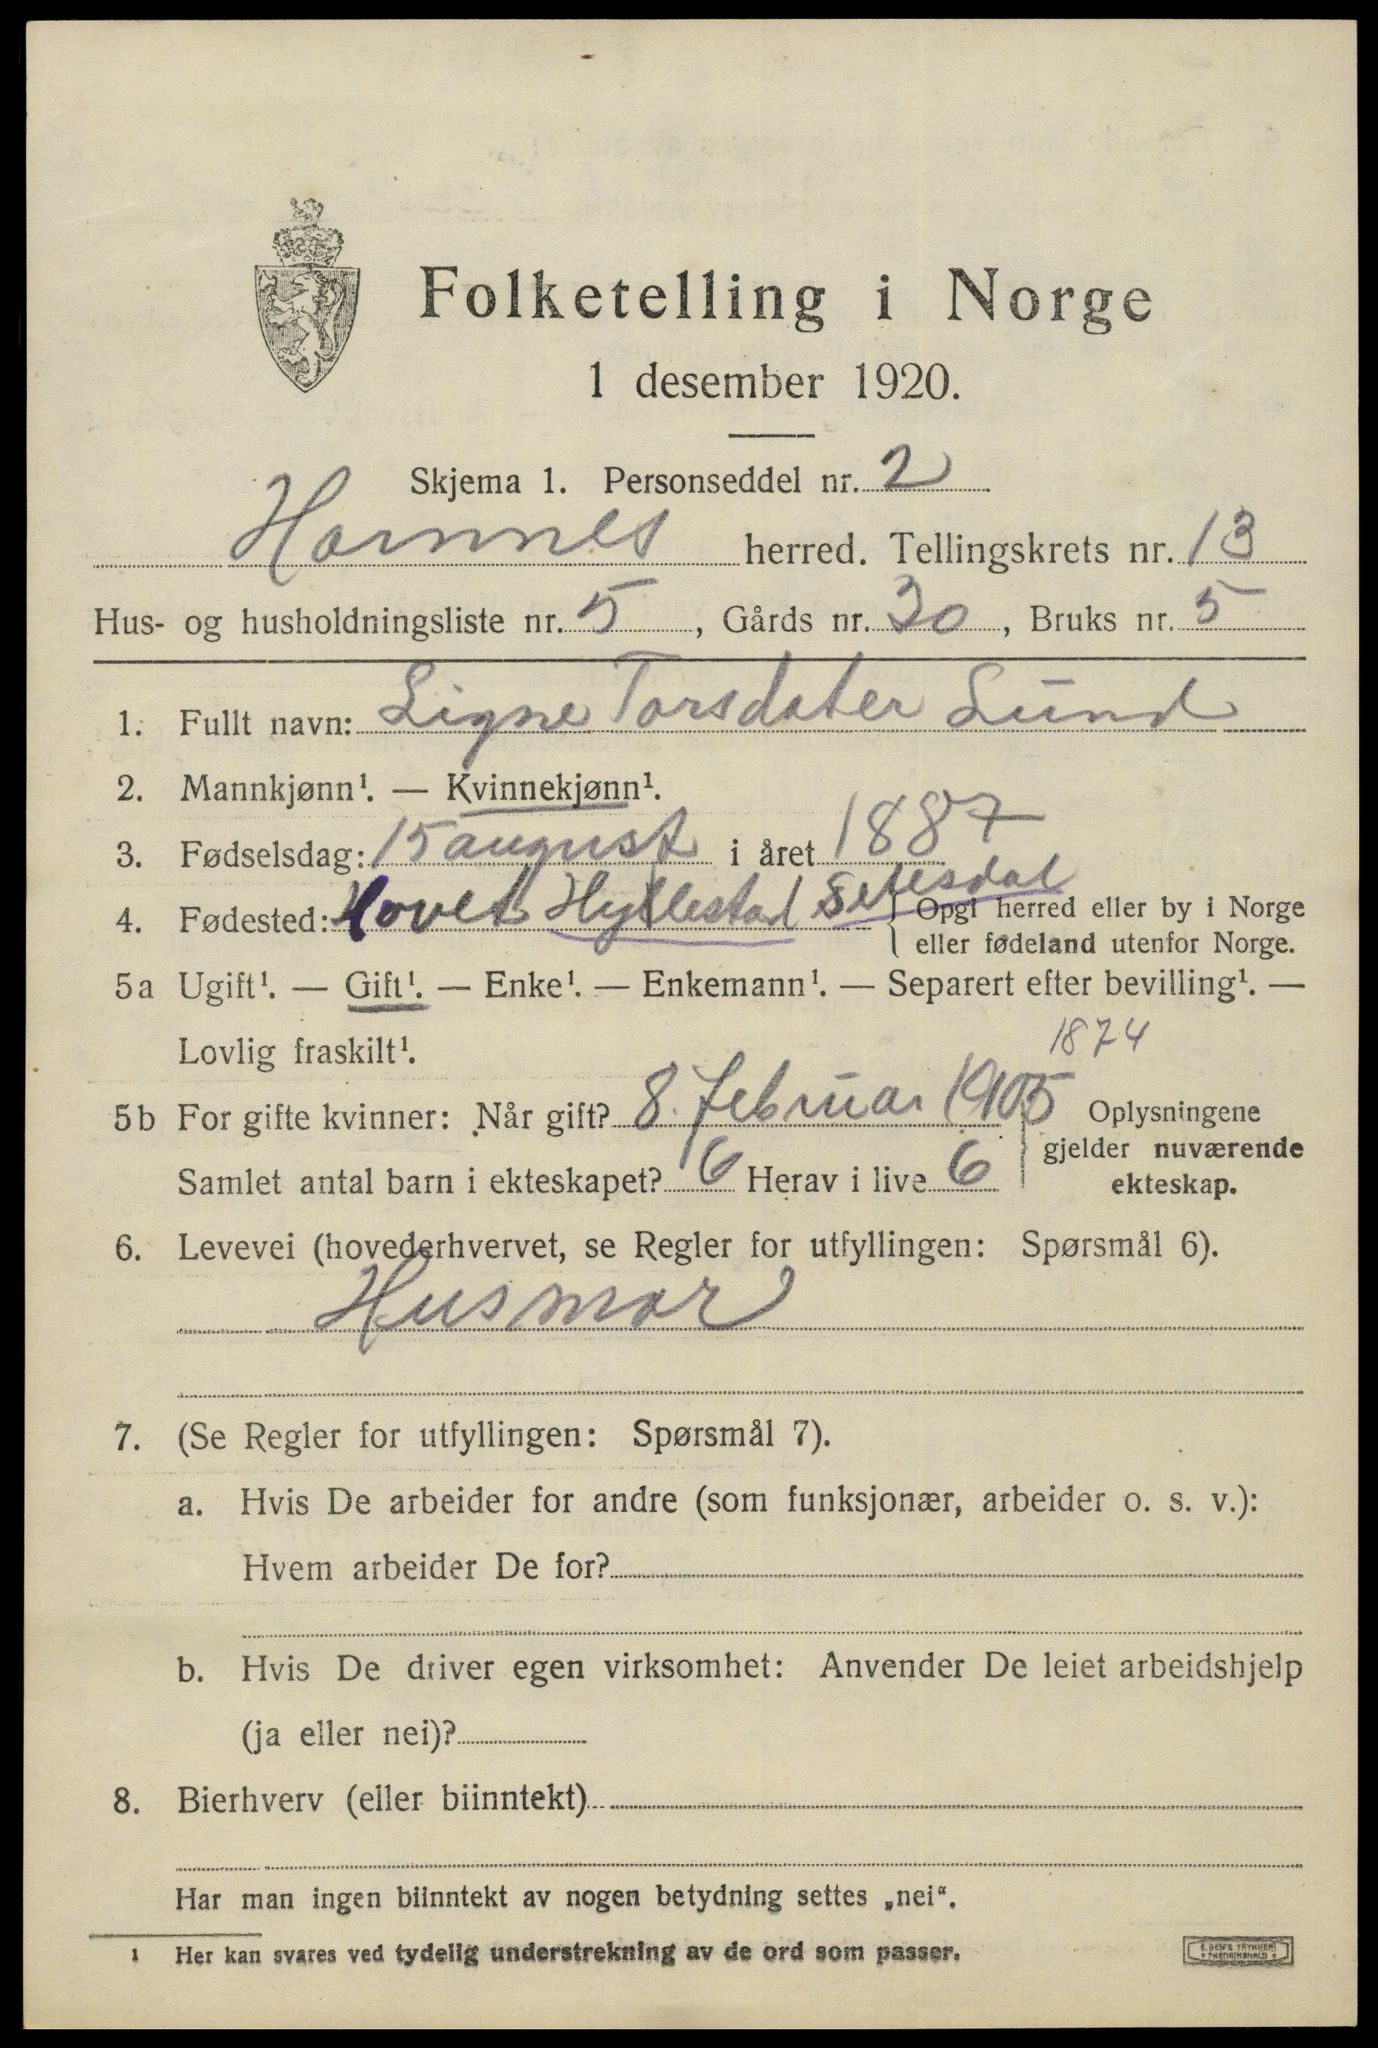 Folketelling i Norge
1 desember 1920.
Skjema 1. Personseddel nr. 2
Hornnes herred. Tellingskrets nr. 13
Hus- og husholdningsliste nr. 5, Gårds nr. 30, Bruks nr. 5
1. Fullt navn: Signe Torsdater Lund
2. Mannkjønn¹. — Kvinnekjønn¹.
3. Fødselsdag: 15 august i året 1887
4. Fødested: Hovet Hyllestad Setesdal { Opgi herred eller by i Norge
eller fødeland utenfor Norge.
5a Ugift¹. — Gift¹. — Enke¹. — Enkemann¹. — Separert efter bevilling¹. —
Lovlig fraskilt¹.
1874
5b For gifte kvinner: Når gift? 8. februar 1905 } Oplysningene
gjelder nuværende
Samlet antal barn i ekteskapet? 6 Herav i live 6 ekteskap.
6. Levevei (hovederhvervet, se Regler for utfyllingen: Spørsmål 6).
Husmor
7. (Se Regler for utfyllingen: Spørsmål 7).
a. Hvis De arbeider for andre (som funksjonær, arbeider o. s. v.):
Hvem arbeider De for?
b. Hvis De driver egen virksomhet: Anvender De leiet arbeidshjelp
(ja eller nei)?
8. Bierhverv (eller biinntekt)
Har man ingen biinntekt av nogen betydning settes „nei“.
¹ Her kan svares ved tydelig understrekning av de ord som passer.